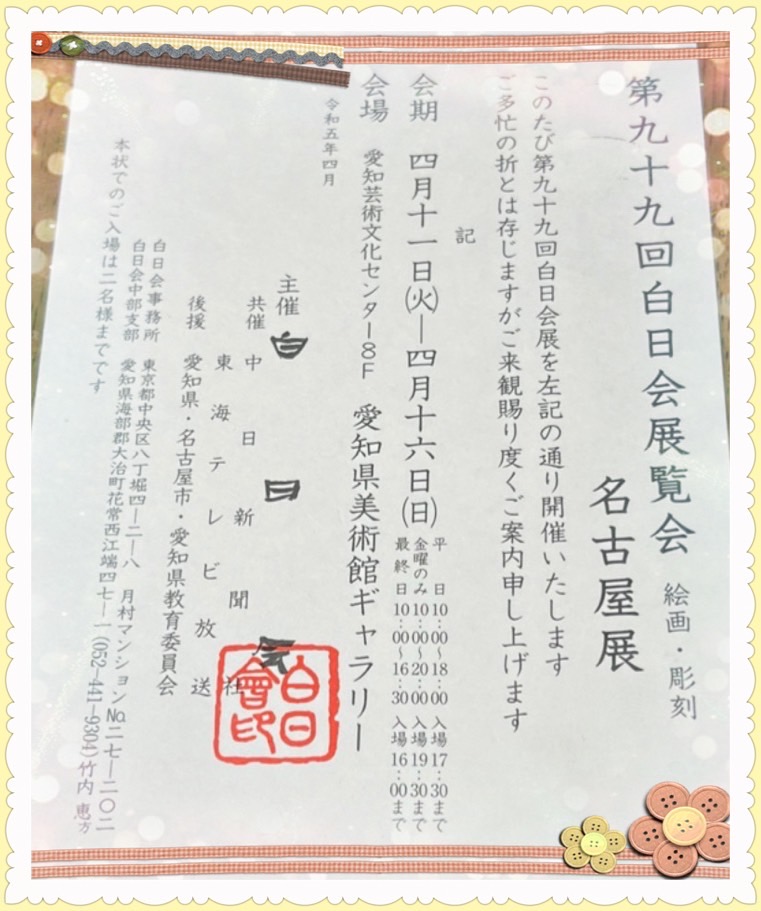 第九十九回白日会展覧会 絵画・彫刻
名古屋展
このたび第九十九回白日会展を左記の通り開催いたします
ご多忙の折とは存じますがご来観賜り度くご案内申し上げます
記
会期 四月十一日(火)―四月十六日(日)
平日 10:00〜18:00 入場17:30まで
金曜のみ 10:00〜20:00 入場19:30まで
最終日 10:00〜16:30 入場16:00まで
会場 愛知芸術文化センター8F 愛知県美術館ギャラリー
令和五年四月
主催 白日会
共催 中日新聞社
東海テレビ放送
後援 愛知県・名古屋市・愛知県教育委員会
白日会事務所 東京都中央区八丁堀四―二―八 月村マンション№二七―二〇二
白日会中部支部 愛知県海部郡大治町花常西江端四七―一(052―441―9304)竹内恵方
本状でのご入場は二名様までです
白日會印